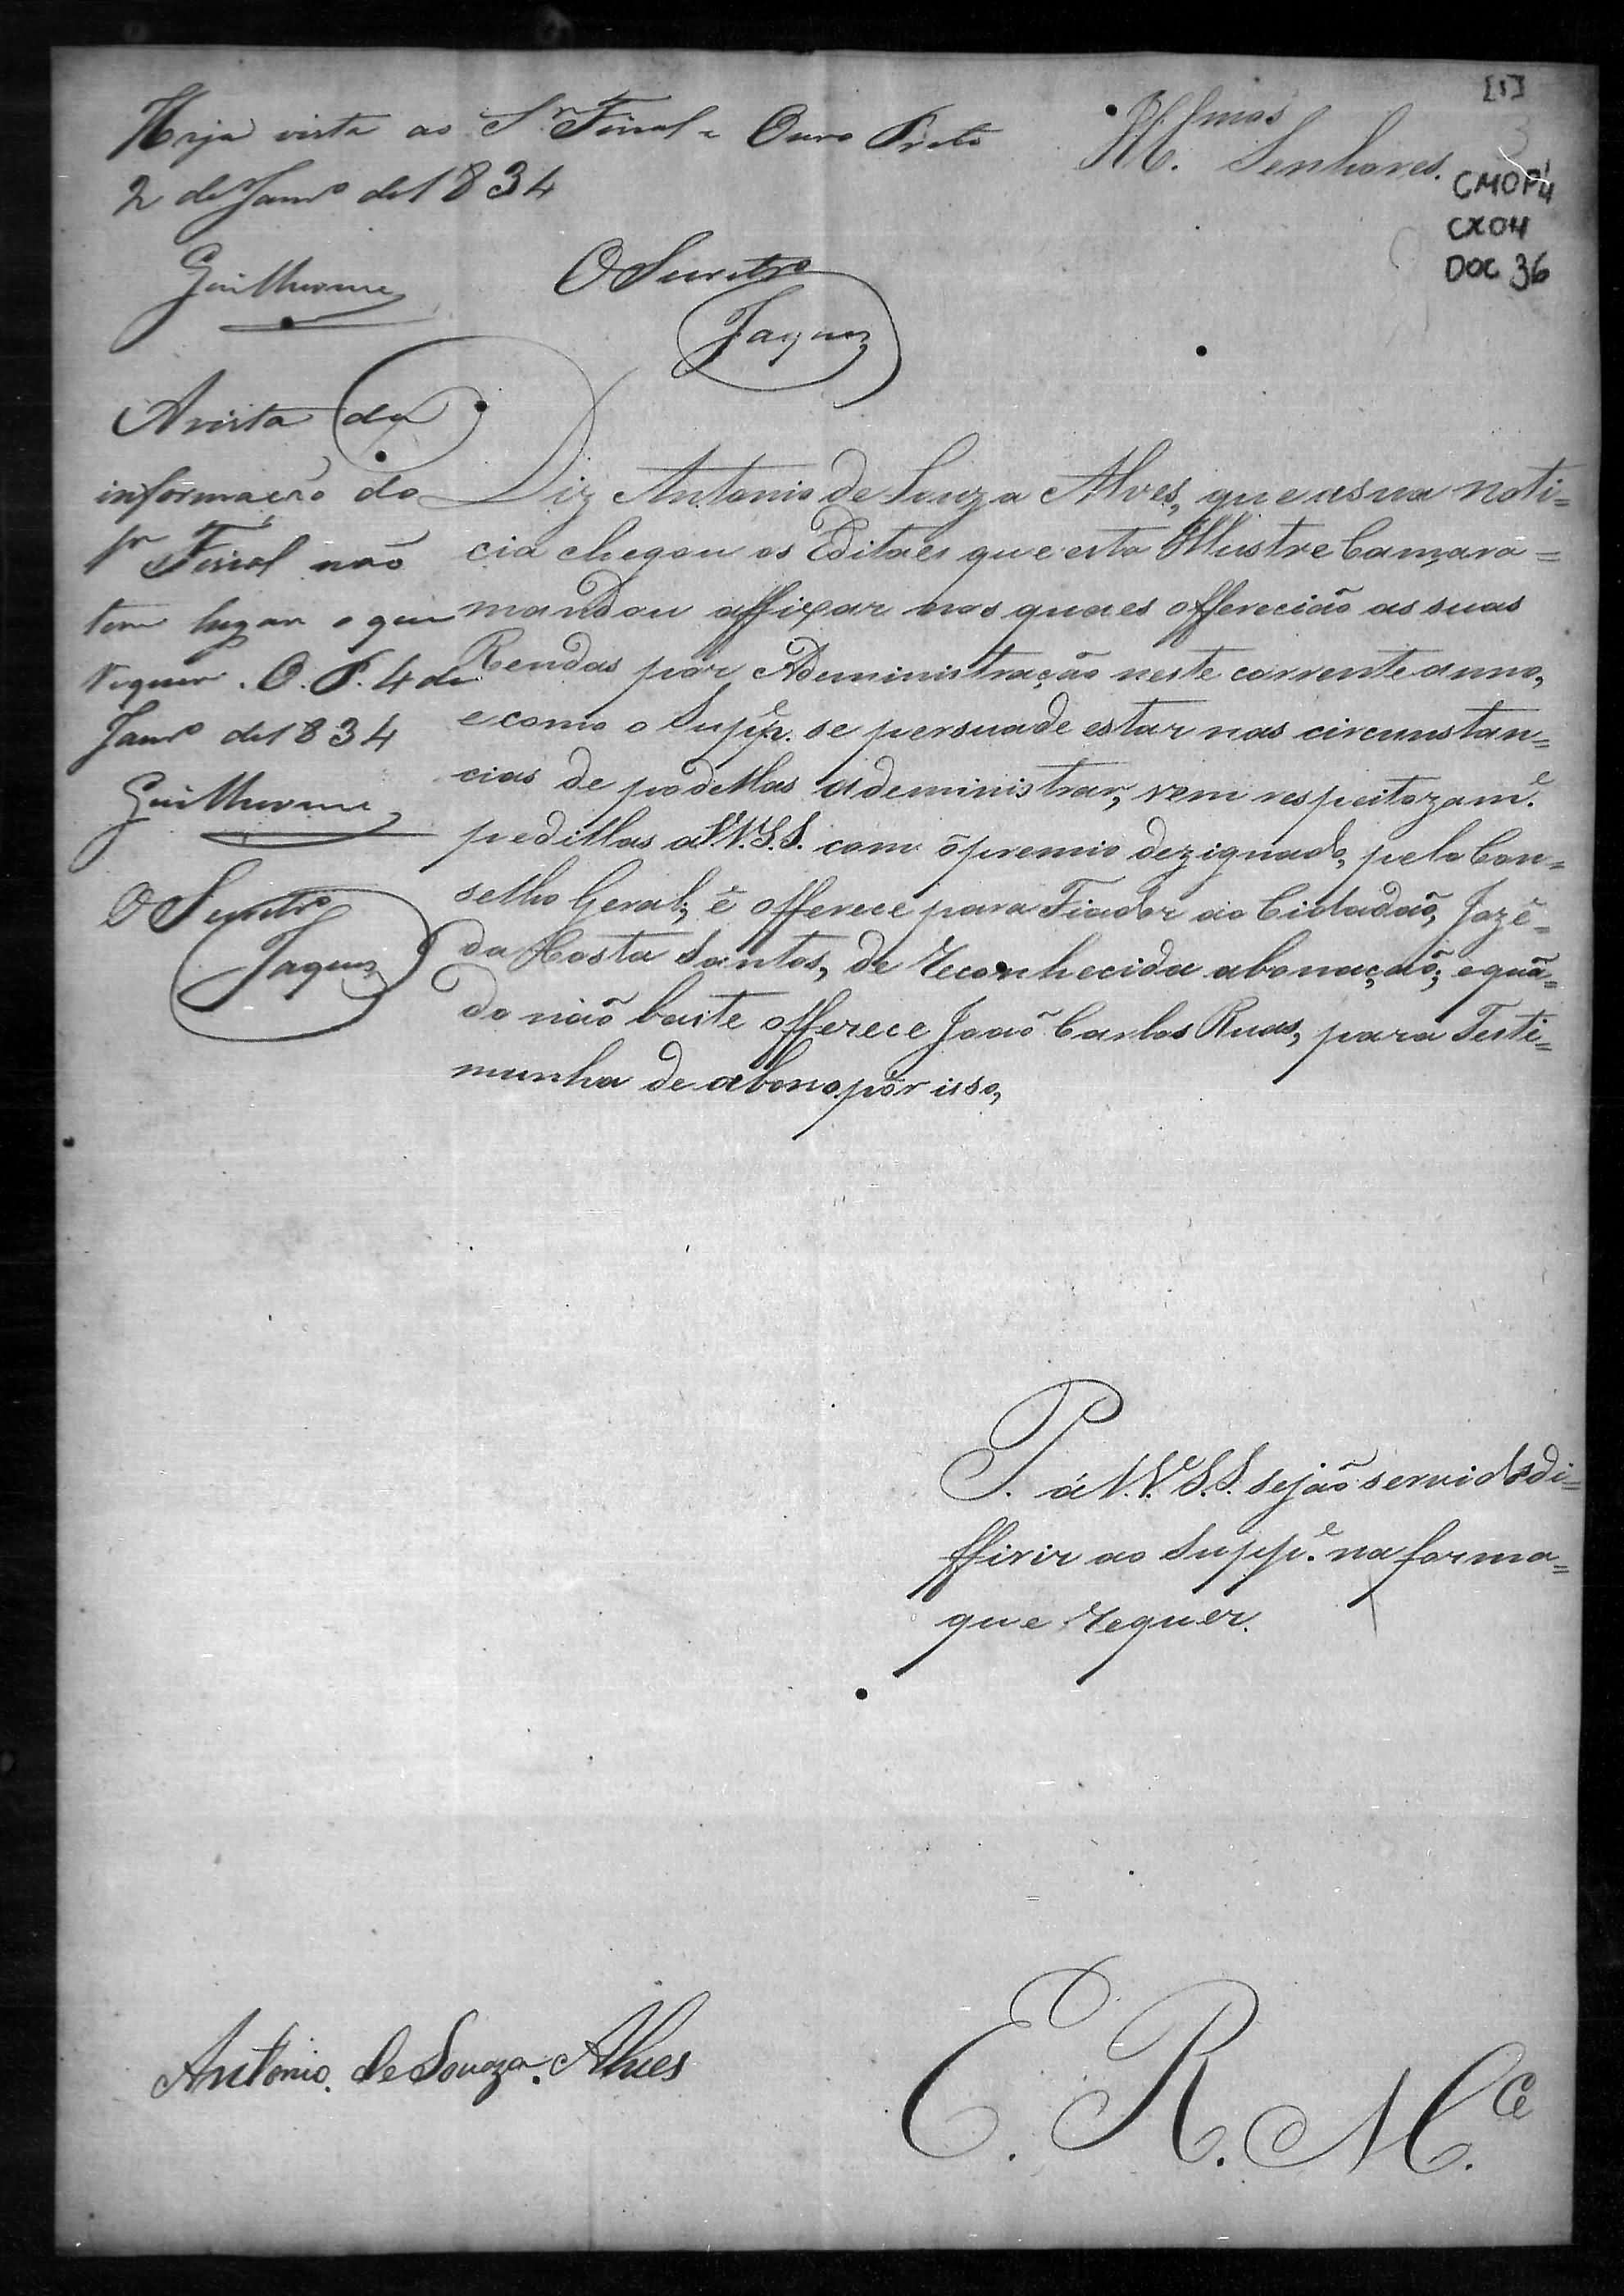 [1]
Haja vista ao Sr. Fiscal Ouro Preto
2 de Janro de 1834
Guilherme
O Secretro
Jaques
Illmos Senhores.
CMOP4
CX04
DOC 36
A vista da
informação do
Sr Fiscal não
tem lugar o que
requer. O. P. 4 de
Janro de 1834
Guilherme
O Secretro
Jaques
Diz Antonio de Souza Alves, que a sua noti=
cia chegou os Editaes que esta Illustre Camara=
mandou affixar nos quaes offerecião as suas
Rendas pór Administração neste corrente anno,
e como o Suppe. se persuade estar nas circunstan=
cias de podellas administrar, vem respeitozame.
pedillas a V.V.S.S. com o premio dezignado, pelo Con=
selho Geral; é offerece para Fiador ao Cidadão, Jozé=
da Costa Santos, de reconhecida abonação; e quã=
do não baste offerece João Carlos Ruas, para Teste=
munha de abono pór isso,
P. á V.V. S.S. sejão servidos di=
ffirir ao Suppe. na forma=
que requer.
Antonio. de Souza. Alves
E. R. Mce.